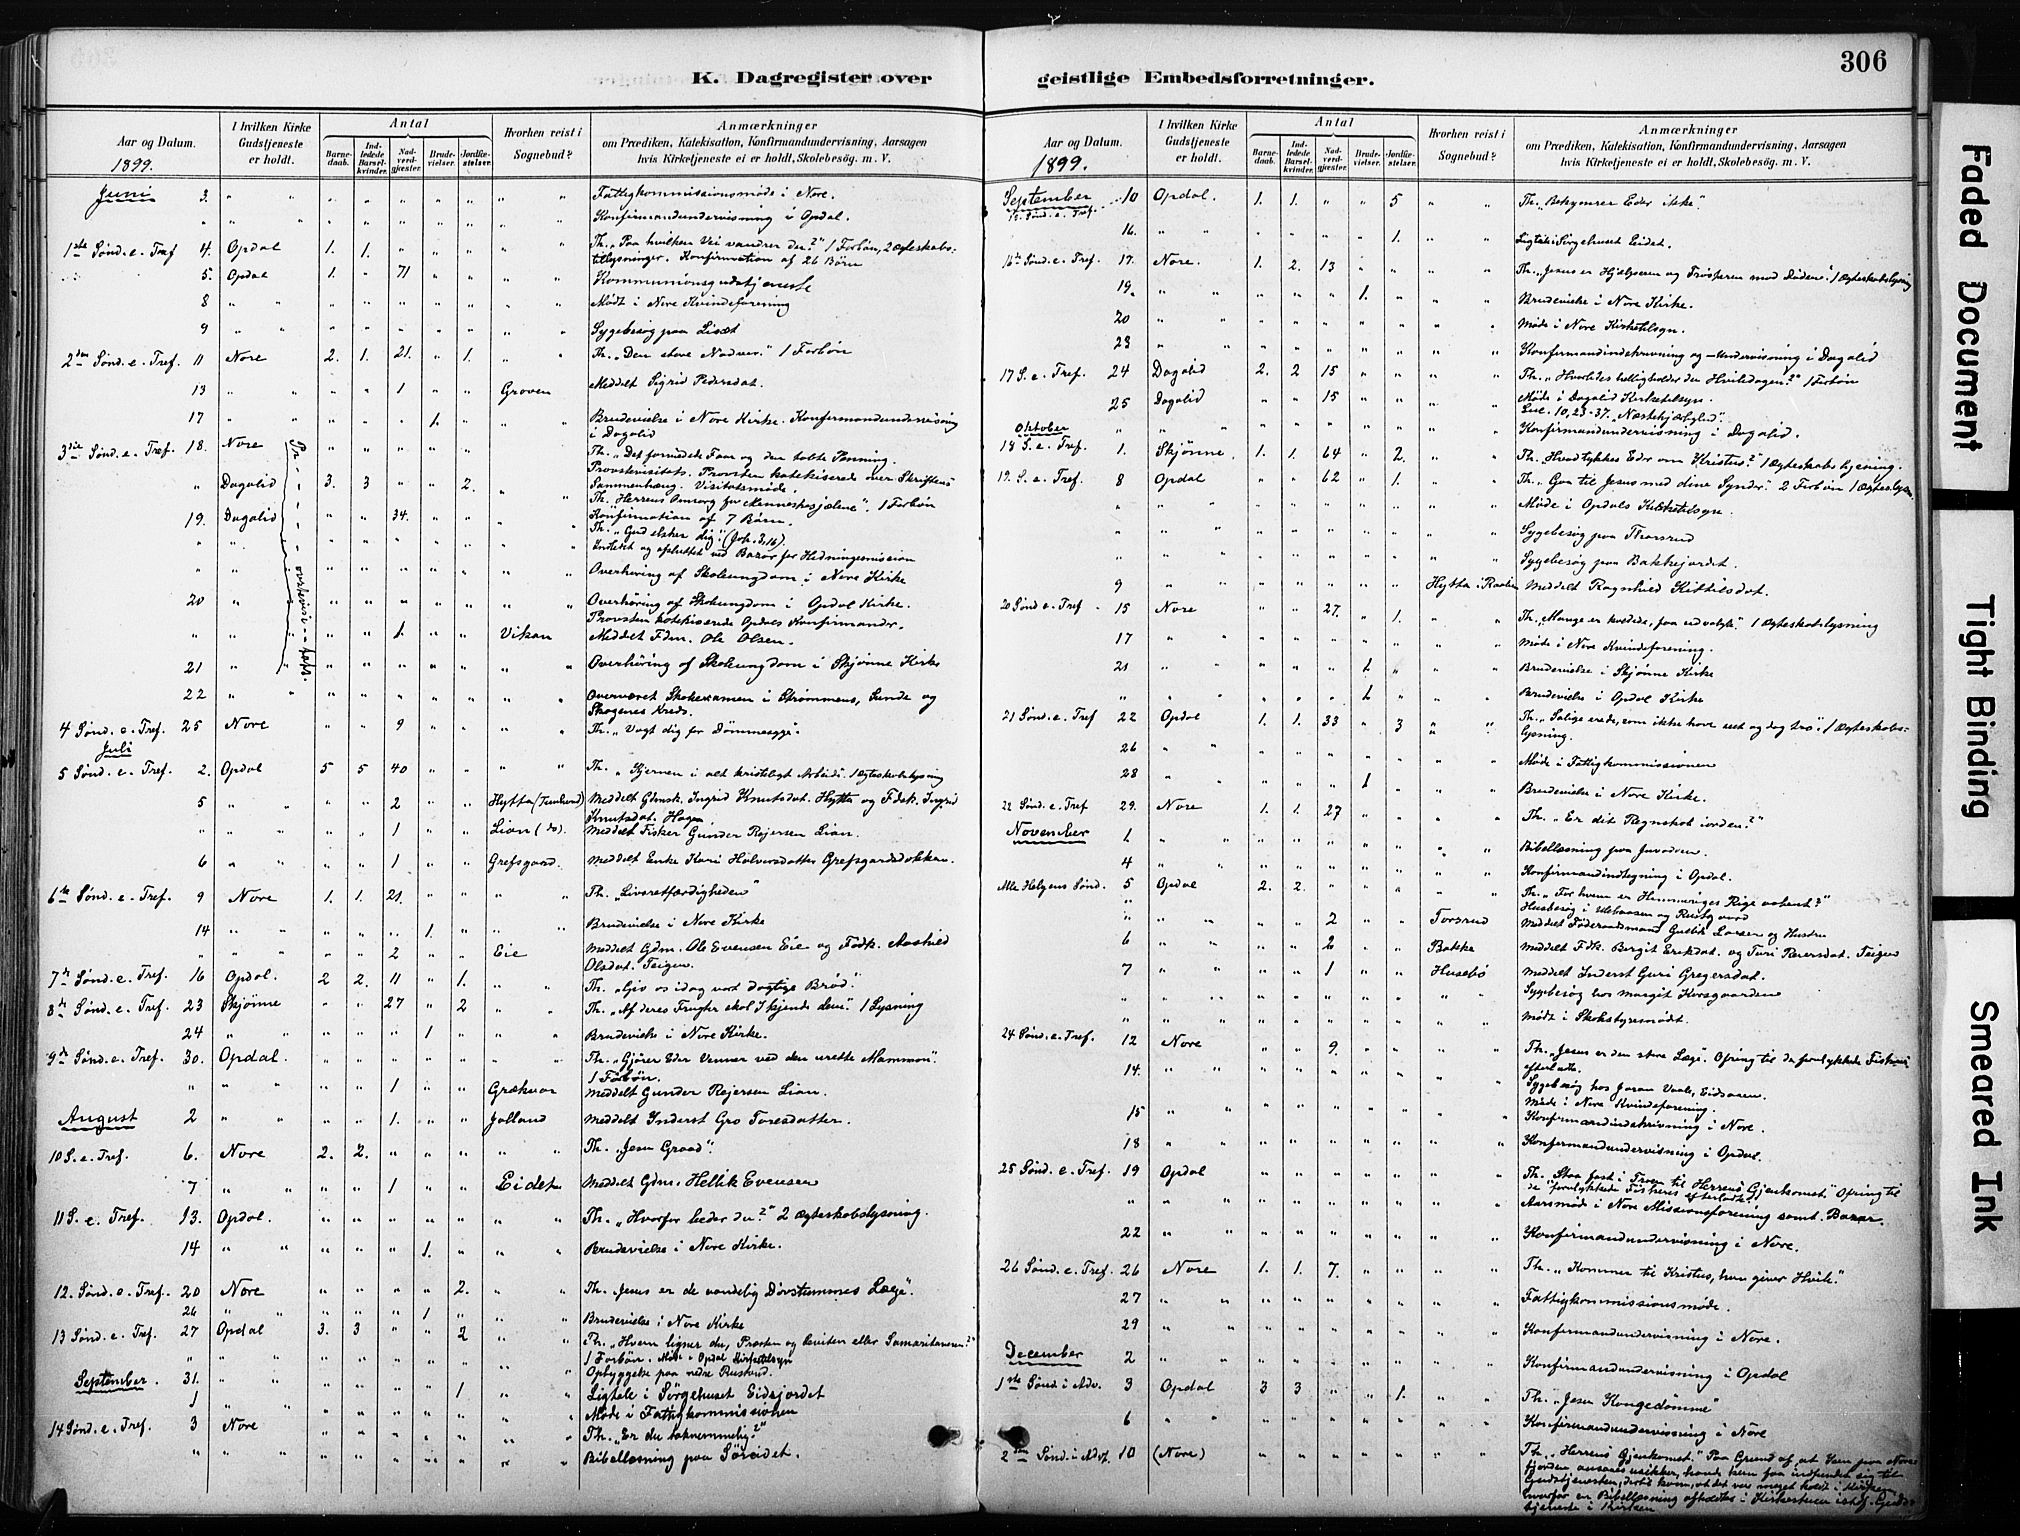 306
K. Dagregister over
geistlige Embedsforretninger.
Aar og Datum.
1899.
I hvilken Kirke
Gudstjeneste
er holdt.
Antal
Barne-
daab.
Ind-
ledede
Barsel-
kvinder.
Nad-
verd-
gjæster.
Brude-
vielser.
Jordfæ-
stelser.
Hvorhen reist i
Sognebud?
Anmærkninger
om Prædiken, Katekisation, Konfirmandundervisning, Aarsagen
hvis Kirketjeneste ei er holdt, Skolebesög. m. V.
Juni 3. " " " " " " " " " Fattigkommissionsmøde i Nore.
" " " " " " " " " " Konfirmandundervisning i Opdal.
1ste Sønd. e. Tref 4. Opdal 1. 1. " " " " " Th. "Paa hvilken Vei vandrer du?" 1 Forbøn, 2 Ægteskabs-
tillysninger. Konfirmation af 26 Børn
5. Opdal 1. " 71 " " " " Kommunionsgudstjeneste
8 " " " " " " " " " Mødt i Nore Kvindeforening
9 " " " " " " " " " Sygebesøg paa Lisæt
2den Sønd. e. Tref. 11 Nore 2. 1. 21. " 1. " " Th. "Den store Nadver." 1 Forbøn
13 " " " " 1 " " Groven Meddelt Sigrid Pedersdat.
17 " " " " " 1. " " " Brudevielse i Nore Kirke. Konfirmandundervisning
i Dagalid
3die Sønd. e. Tref. 18. Nore " " " " " " " Th. "Det fornedede Faar og den tabte Penning.
Provstevisitats. Provsten katekiserede over Skriftens
" Dagalid 3. 3 " " 2. " " Sammenhæng. Visitatsmøde.
Th. Herrens Omsorg for Menneskesjælene". 1 Forbøn
19. Dagalid " " 34. " " " " Konfirmation af 7 Børn.
Th. "Gud elsker dig" (Joh. 3,16).
" " " " " " " " " Indledet og afsluttet ved Bazar for Hedningemission
" " " " " " " " " Overhøring af Skoleungdom i Nore Kirke
20 " " " " " " " " Overhøring af Skoleungdom i Opdal Kirke.
Provsten katekiserede Opdals Konfirmander.
" " " " 1. " " Vikan Meddelt Fdm. Ole Olsen.
21 " " " " " " " " " Overhøring af Skoleungdom i Skjønne Kirke
22 " " " " " " " " " Overværet Skoleexamen i Strømmens, Sunde og
Skogenes Kreds.
4 Sønd. e. Tref. 25 Nore " " 9 " " " " Th. "Vogt dig for Dømmesyge".
Juli
5 Sønd. e. Tref. 2. Opdal 5 5 40 " " " " Th. "Kjernen i alt kristeligt Arbeide". 1 Ægteskabslysning
5 " " " " 2 " " Hytta (Tunhovd) Meddelt Gdmsk. Ingrid Knutsdat. Hytta og Fdsk. Ingrid
Knutsdat. Hagen
" " " " " 1 " " Lian (do). Meddelt Fisker Gunder Rejersen Lian.
6 " " " " 1 " " Grefsgaard. Meddelt Enke Kari Halvorsdatter Grefsgardsdokkan.
6te Sønd. e. Tref. 9 Nore 1. 1. 21. " " " " Th. "Livsretfærdigheden"
14 " " " " " 1. " " " Brudevielse i Nore Kirke
" " " " " 2 " " Eie Meddelt Gdm. Ole Evensen Eie og Fdsk. Aashild
Olsdat. Teigen.
7de Sønd. e. Tref. 16 Opdal. 2 2. 11 " 1. " " Th. "Giv os idag vort daglige Brød".
8de Sønd. e. Tref. 23 Skjønne " " 27 " 2 " " Th. "Af deres Frugter skal I kjende dem". 1 Lysning
24 " " " " " 1 " " " Brudevielse i Nore Kirke.
9de Sønd. e. Tref. 30. Opdal. " " " " " " " Th. "Gjører Eder Venner ved den urette Mammon".
1 Forbøn.
" " " " " 1 " " Grækvar Meddelt Gunder Rejersen Lian.
August 2 " " " " 1. " " Jalland Meddelt Inderst Gro Toresdatter.
10 S. e. Tref. 6. Nore 2. 2. " " " " " Th. "Jesu Graad".
7 " " " " 1 " " Eidet Meddelt Gdm. Hellik Evensen
11 S. e. Tref. 13. Opdal. " " " " " " " Th. "Hvorfor beder du?" 2 Ægteskabslysning.
14 " " " " " 1. " " " Brudevielse i Nore Kirke.
12. Sønd. e. Tref. 20 Nore " " " " 2. " " Th. "Jesus er de vandelig Døvstummes Læge".
26 " " " " " 1 " " " Brudevielse i Nore Kirke
13 Sønd. e. Tref. 27 Opdal 3. 3 " " 2 " " Th. "Hvem ligner du, Præsten og Leviten eller Samaritanen?"
1 Forbøn. Møde i Opdal Kirketilsyn
Opbyggelse paa nedre Rustand.
September. 31. " " " " " " 1 " " Ligtale i Sørgehuset Eidsjordet
1 " " " " " " " " " Møde i Fattigkommissionen
14 Sønd. e. Tref. 3 Nore " " " " " " " Th. "Er du taknemmelig?"
" " " " " " " " " " Bibellæsning paa Søreidet.
Aar og Datum.
1899.
I hvilken Kirke
Gudstjeneste
er holdt.
Antal
Barne-
daab.
Ind-
ledede
Barsel-
kvinder.
Nad-
verd-
gjæster.
Brude-
vielser.
Jordfæ-
stelser.
Hvorhen reist i
Sognebud?
Anmærkninger
om Prædiken, Katekisation, Konfirmandundervisning, Aarsagen
hvis Kirketjeneste ei er holdt, Skolebesög. m. V.
September 10 Opdal. 1. 1. " " 5 " " Th. "Bekymrer Eder ikke".
15. Sønd. e. Tref.
16. " " " " " " 1. " " Ligtale i Sørgehuset Eidet.
16de Sønd. e. Tref. 17. Nore. 1. 2. 13 " " " " Th. "Jesus er Hjælperen og Trøsteren mod Døden". 1 Ægteskabslysning
19. " " " " " 1. " " " Brudevielse i Nore Kirke.
20 " " " " " " " " " Møde i Nore Kirketilsyn.
23 " " " " " " " " " Konfirmandindskrivning og -Undervisning i Dagalid
17 S. e. Tref. 24 Dagalid 2. 2 15 " " " " Th. "Hvorledes helligholder du Hviledagen?" 1 Forbøn
25 Dagalid " " 15 " " " " Møde i Dagalid Kirketilsyn.
Luc. 10, 23-37. "Næstekjærlighed".
Oktober " " " " " " " " " Konfirmandundervisning i Dagalid.
18 S. e. Tref. 1. Skjønne. 1. 1. 64 " 2. " " Th. "Hvad tykkes Eder om Kristus?" 1 Ægteskabslysning.
19. S. e. Tref. 8 Opdal " " 62 " 1. " " Th. "Gaa til Jesus med dine Synder". 2 Forbøn 1 Ægteslysn.
" " " " " " " " " Møde i Opdals Kirketilsyn.
" " " " " " " " " Sygebesøg paa Thorsrud
" " " " " " " " " Sygebesøg paa Bakkejordet.
9 " " " " " " " Hytta i Raaen Meddelt Ragnhild Kittilsdat.
20 Sønd. e. Tref. 15 Nore " " 27. " 1. " " Th. "Mange er kaldede, faa udvalgte". 1 Ægteskabslysning
17 " " " " " " " " " Møde i Nore Kvindeforening.
21 " " " " " 1 " " " Brudevielse i Skjønne Kirke
" " " " " " 1 " " " Brudevielse i Opdal Kirke
21 Sønd. e. Tref 22 Opdal 1. 1. 33 " 3 " " Th. "Salige er de, som ikke have seet og dog tro". 1 Ægteskabs-
lysning.
26 " " " " " " " " " Møde i Fattigkommissionen
28 " " " " " 1 " " " Brudevielse i Nore Kirke.
22 Sønd. e. Tref 29. Nore 1. 1. 27 " " " " Th. "Er dit Regnskab iorden?"
November 1 " " " " " " " " " Bibellæsning paa Juvodden.
4 " " " " " " " " " Konfirmandindtegning i Opdal.
Alle Helgens Sønd. 5 Opdal 2. 2. " " " " " Th. "For hvem er Himmeriges Rige aabent?"
Husbesøg i Ulshaasen og Rustgaard
" " " " " 2 " " Torsrud Meddelt Føderaadsmand Gullik Larsen og Hustru
6 " " " " 2 " " Bakke Meddelt Fdk. Birgit Eriksdat. og Turi Reiersdat. Teigen
7 " " " " 1 " " Husebø Meddelt Inderst Guri Gregersdat.
" " " " " " " " " Sygebesøg hos Margit Korsgaarden
" " " " " " " " " Mødt i Skolestyremødt.
24 Sønd. e. Tref. 12 Nore " " 9. " " " " Th. "Jesus er den store Læge". Ofring til de forulykkede Fiskeres
efterladte.
14. " " " " " " " " " Sygebesøg hos Joran Vaale, Eidsaaen.
Møde i Nore Kvindeforening.
15 " " " " " " " " " Konfirmandindskrivning i Nore.
18 " " " " " " " " " Konfirmandundervisning i Opdal.
25 Sønd. e. Tref. 19 Opdal " " " " " " " Th. "Staa fast i Troen til Herrens Gjenkomst." Ofring til
de forulykkede Fiskeres efterladte.
" " " " " " " " " Aarsmøde i Nore Missionsforening samt Bazar.
22 " " " " " " " " " Konfirmandundervisning i Nore.
26 Sønd. e. Tref. 26 Nore 1. 1. 7. " " " " Th. "Kommer til Kristus, han giver Hvile."
27 " " " " " " " " " Fattigkommissionsmøde.
29 " " " " " " " " " Konfirmandundervisning i Nore.
December 2 " " " " " " " " " Konfirmandundervisning i Opdal
1ste Sønd i Adv. 3 Opdal 3 3 " " 1. " " Th. "Jesu Kongedømme"
6 " " " " " " " " " Konfirmandundervisning i Nore
2den Sønd. i Adv. 10 (Nore) " " " " " " " Th. "Herrens Gjenkomst." Paa Grund af, at Isen paa Nore-
fjorden ansaaes usikker, havde kun faa indfundet sig til
Gudstjenesten, dertil kom, at det var meget koldt i Kirken
hvorfor en Bibellæsning afholdtes i Kirkestuen istdf. Guds-
tjeneste i Kirken
Faded Document
Tight Binding
Smeared Ink